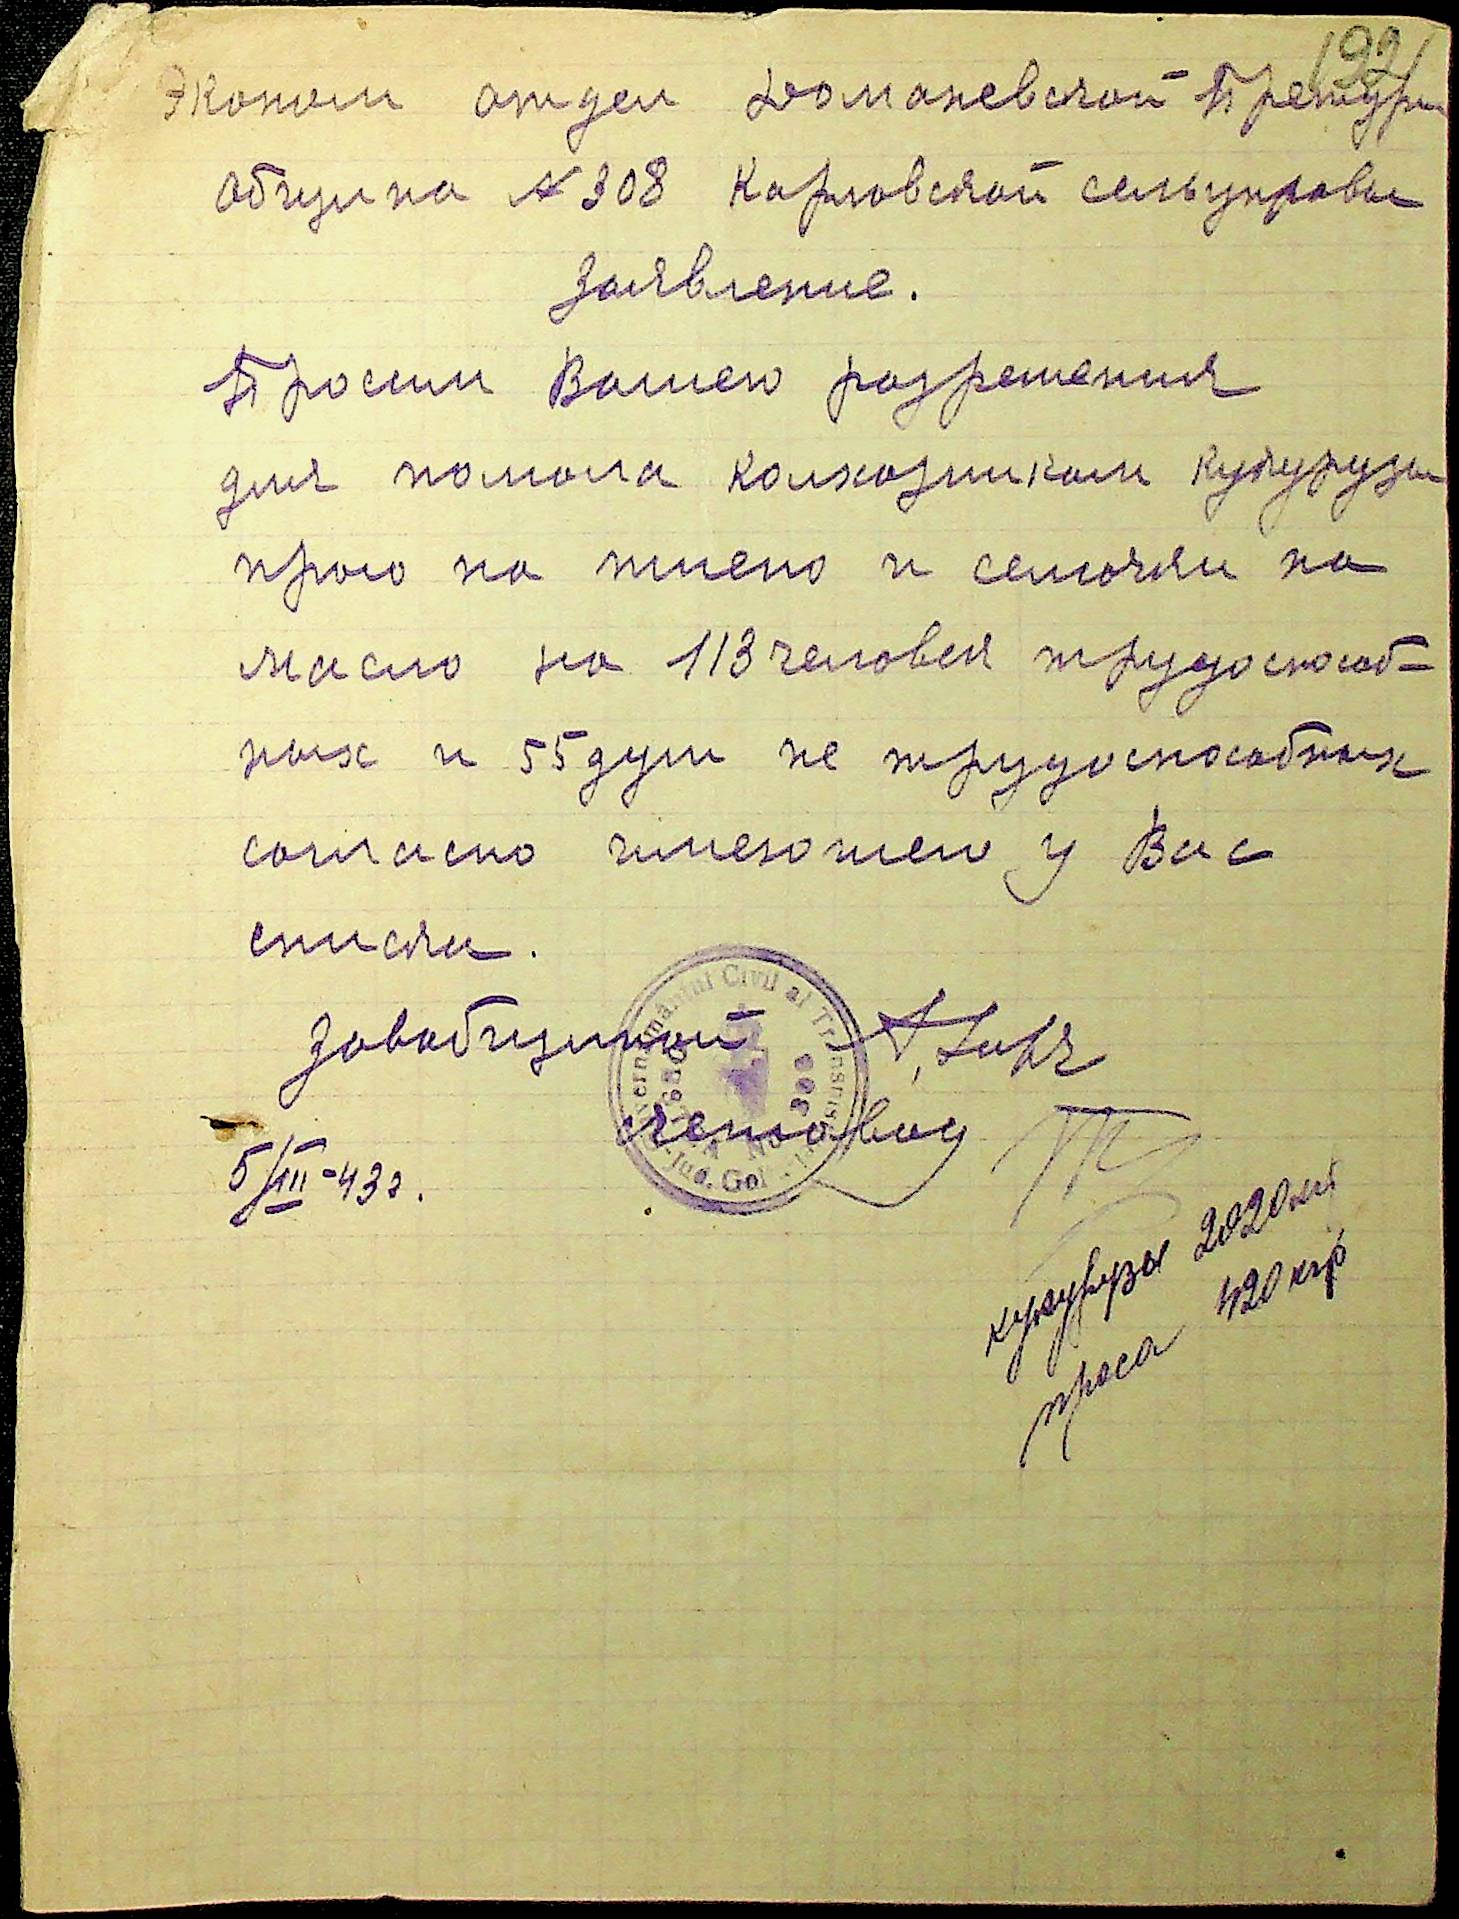 192
Эконом отдел Доманевской Претуры
Община № 308 Карловской сельуправы
Заявление.
Просим Вашего разрешения
для помола колхозникам кукурузы
просо на пшено и семочки на
масло на 113 человек трудоспособ-
ных и 55 душ не трудоспособных
согласно имеющего у Вас
списка.
Завобщиной
счетовод
5/III-43г.
Guvernământul Civil al Transnistriei
Jud. Golta
No 308
кукурузы 2020 кг
проса 420 кгр